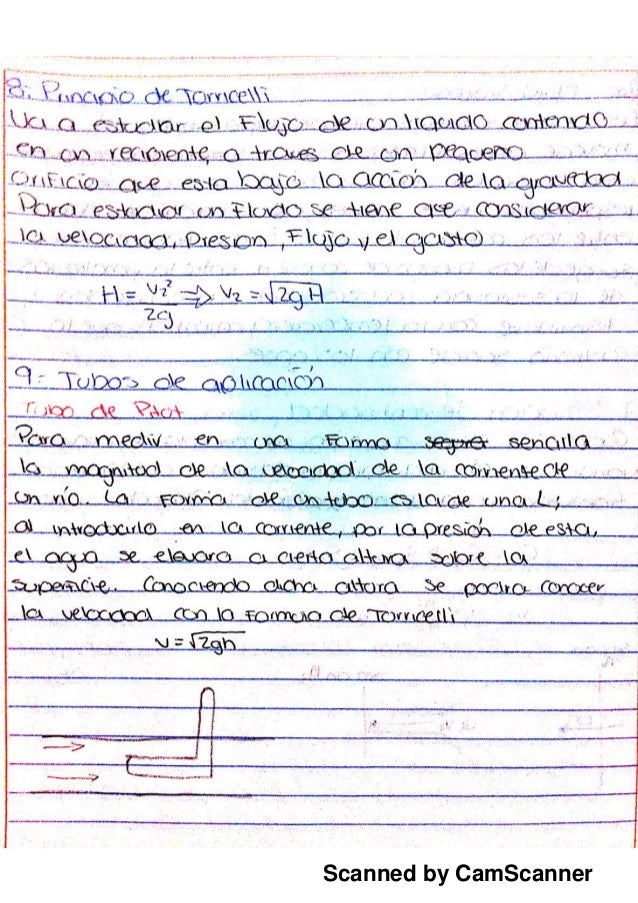 8.- Principio de Torricelli
Va a estudiar el Flujo de un liquido contenido
en un recipiente, a traves de un pequeño
Orificio que esta bajo la acción de la gravedad
Para estudiar un Fluido se tiene que considerar
la velocidad, Presion, Flujo y el gasto
H = V₂²/2g => V₂ = √2gH
9.- Tubos de aplicación
Tubo de Pitot
Para medir en una Forma segurer sencilla
la magnitud de la velocidad de la corriente de
un río. La Forma de un tubo es la de una L;
al introducirlo en la corriente, por la presión de esta,
el agua se elevara a cierta altura sobre la
superficie. Conociendo dicha altura se podra conocer
la velocidad con la Formula de Torricelli
v = √2gh
Scanned by CamScanner